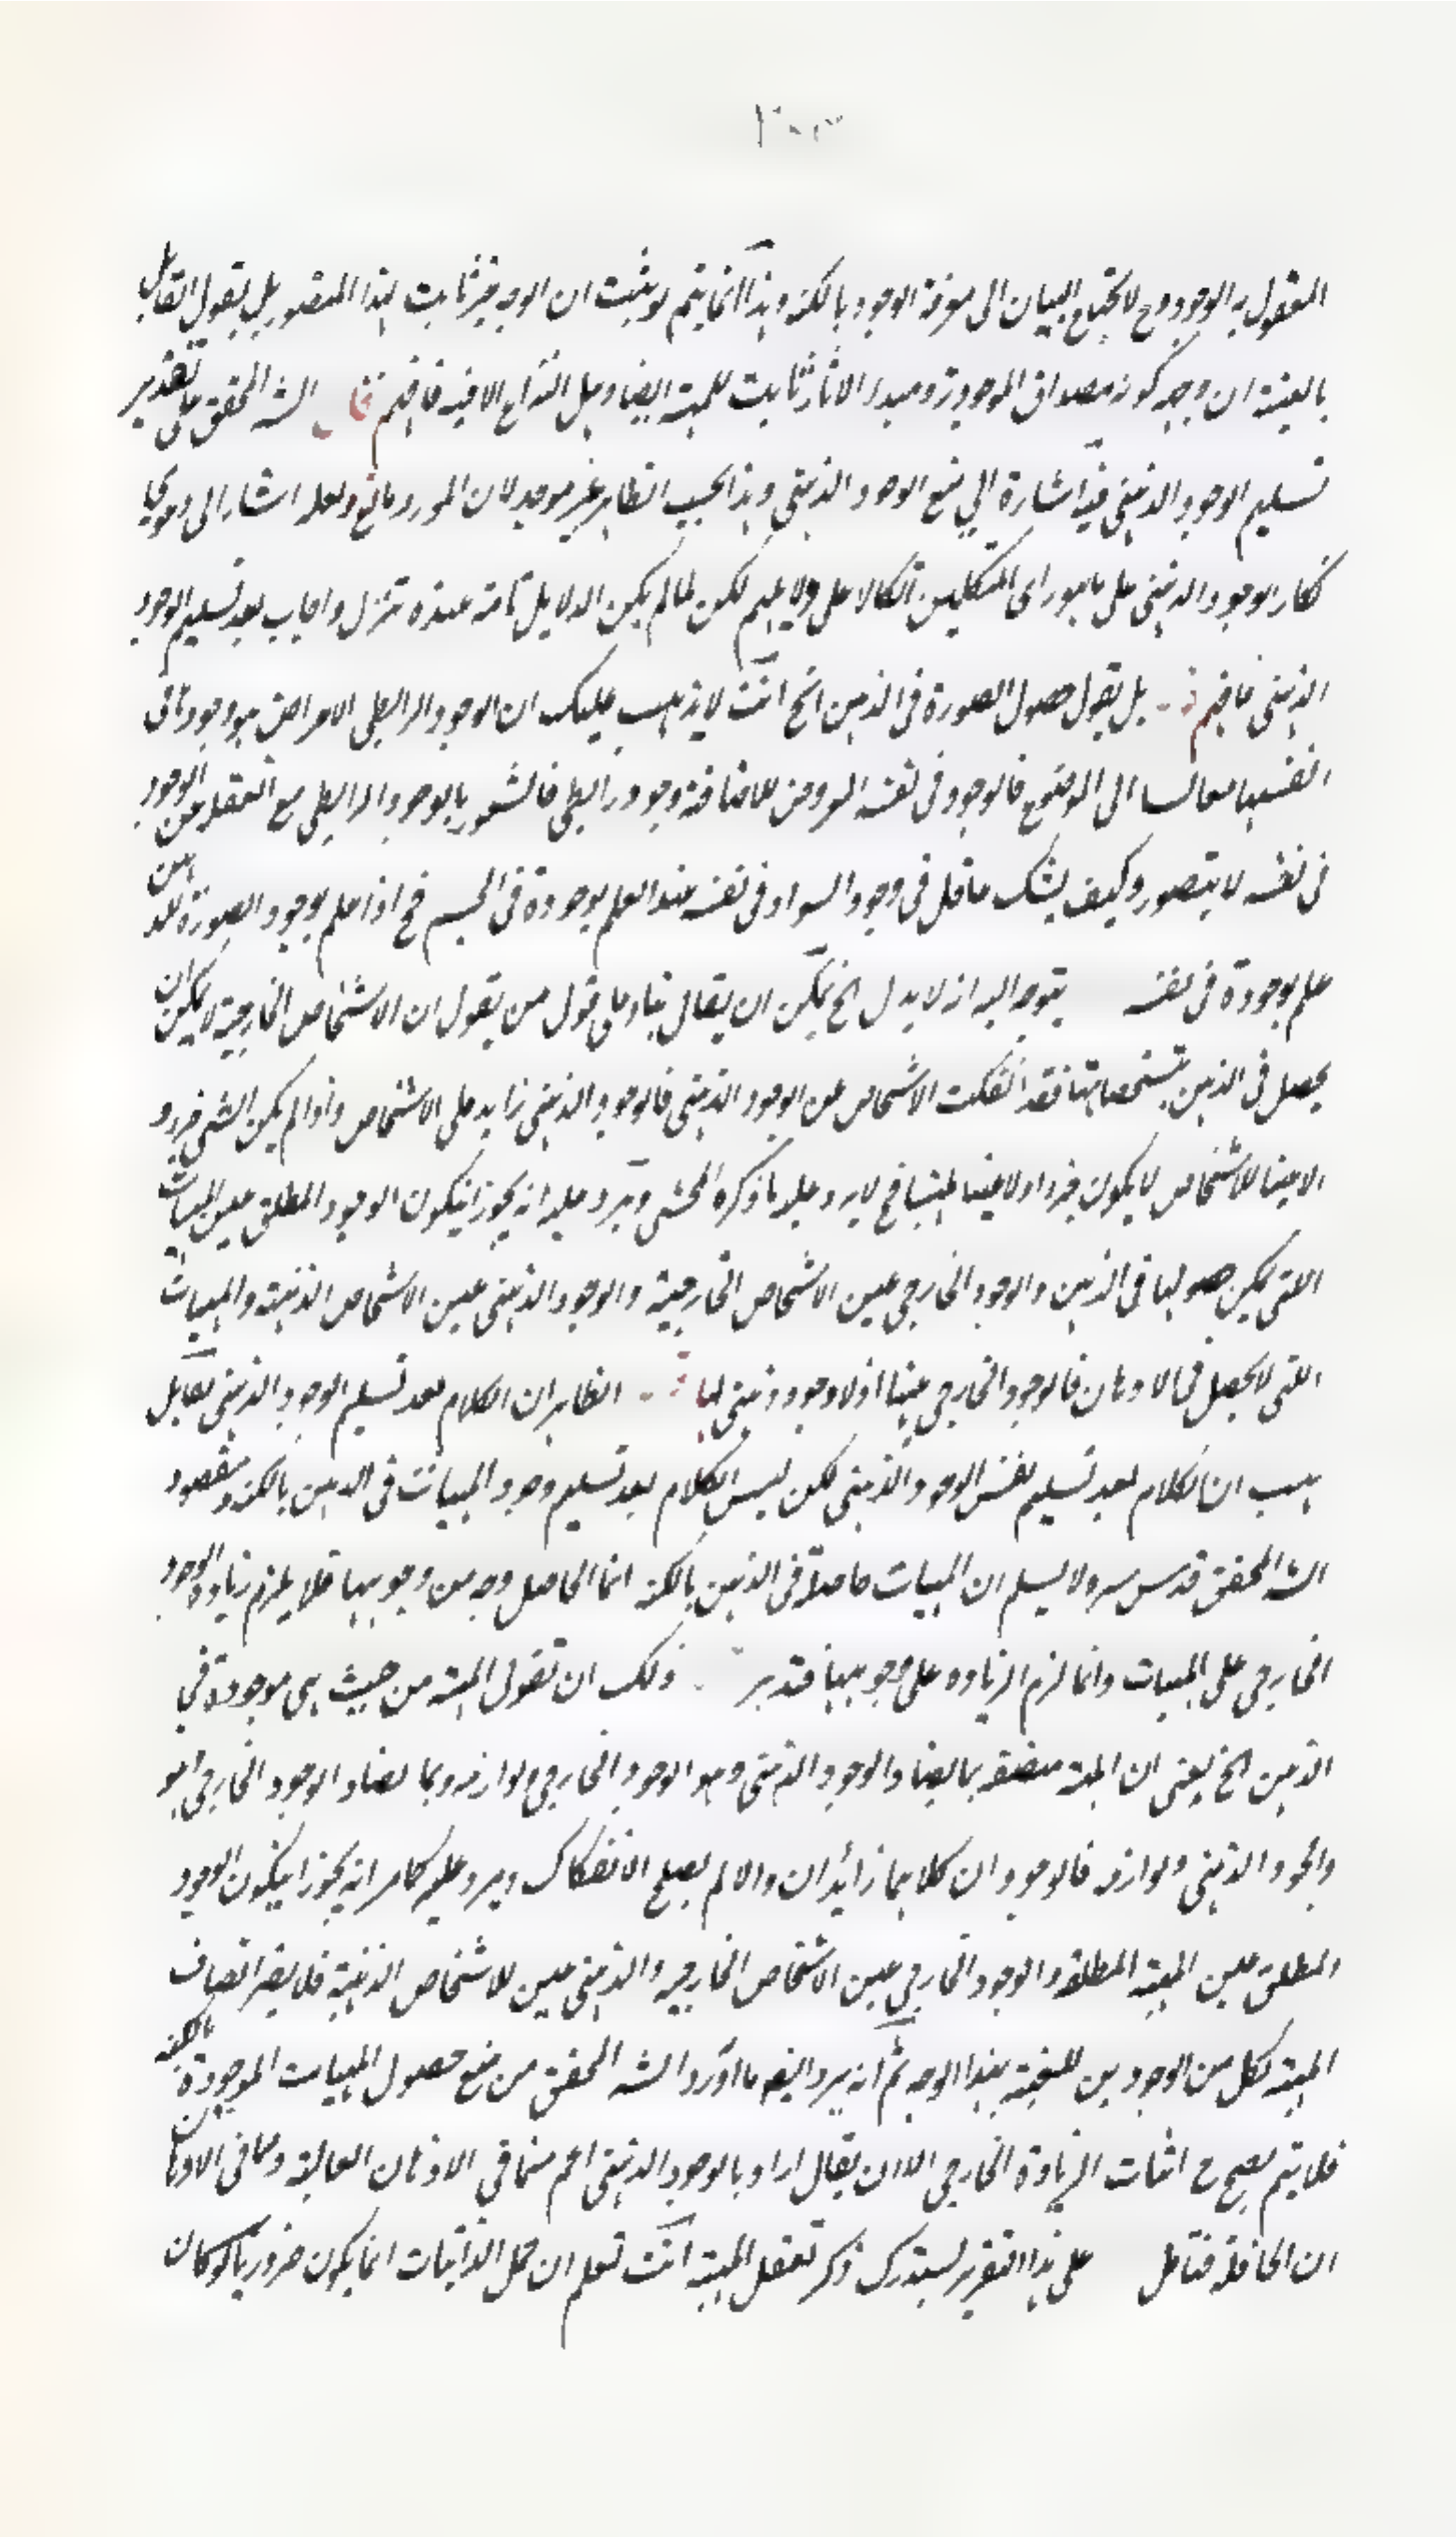 ٢٠٣
المعقول به الوجود وح لا يحتاج البيان الى معرفة الوجود بالكنه وهذا انما يتم لو ثبت ان الوجه غير ثابت لهذا المتصور بل يقول القائل
بالعينية ان وجه كونه مصداق الموجودية ومبدء الاثار ثابت للمهية ايضا وهل النزاع الا فيه فافهم الشه المحقق على تقدير
تسليم الوجود الذهنى فيه اشارة الى منع الوجود الذهنى وهذا بحسب الظاهر غير موجه لان المورد مانع ولعله اشار الى دعوى
نكار الوجود الذهنى على ما هو راى المتكلمين اتكالا على دلايلهم لكن لما لم يكن الدلايل تامة عنده تنزل واجاب بعد تسليم الوجود
الذهنى فافهم بل يقول حصول الصورة فى الذهن الخ انت لا يذهب عليك ان الوجود الرابطى الاعراض هو وجودها فى
انفسها الى الموضوع فالوجود فى نفسه المعروض للاضافة وجود رابطى فالشعور بالوجود الرابطى مع التعقل عن الوجود
فى نفسه لا يتصور وكيف يشك عاقل فى وجود السواد فى نفسه عند العلم بوجوده فى الجسم فح اذا علم بوجود الصورة للذهن
علم بوجوده فى نفسه يتوجه اليه انه لا يدل الخ يمكن ان يقال بناء على قول من يقول ان الاشخاص الخارجية لا يمكن ان
يحصل فى الذهن بتشخصاتها فقد انفكت الاشخاص عن الوجود الذهنى فالوجود الذهنى زايد على الاشخاص واذا لم يكن الشى جزء و
لا عينا للاشخاص لا يكون جزءا ولا عينا لمهيتها فح لا يرد عليه ما ذكره المحشى ويرد عليه انه يجوز ان يكون الوجود المطلق عين المهيات
التى يمكن حصولها فى الذهن والوجود الخارجى عين الاشخاص الخارجية والوجود الذهنى عين الاشخاص الذهنية والمهيات
التى لا يحصل فى الاذهان فالوجود الخارجى عينها اذ لا وجود ذهنى لها الظاهر ان الكلام بعد تسليم الوجود الذهنى لقائل
هب ان الكلام بعد تسليم نفس الوجود الذهنى لكن ليس الكلام بعد تسليم وجود المهيات فى الذهن بالكنه ومقصود
الشه المحقق قدس سره لا يسلم ان المهيات حاصلة فى الذهن بالكنه انما الحاصل وجه من وجوهها فلا يلزم زيادة الوجود
الخارجى على المهيات وانما لزم الزيادة على وجوهها فتدبر ولك ان تقول المهية من حيث هى موجودة فى
الذهن الخ يعنى ان المهية متصفة بما يضاد الوجود الذهنى وهو الوجود الخارجى ولوازمه وبما يضاد الوجود الخارجى هو
والوجود الذهنى ولوازمه فالوجودان كلاهما زائدان والا لم يصلح الانفكاك ويرد عليه كما مر انه يجوز ان يكون الوجود
المطلق عين المهية المطلقة والوجود الخارجى عين الاشخاص الخارجية والذهنى عين للاشخاص الذهنية فلا يضر اتصاف
المهية لكل من الوجودين للعينية بهذا الوجه ثم انه يرد ايضا ما اورد الشه المحقق من منع حصول المهيات الموجودة بالكنه
فلا يتم يصح ح اثبات الزيادة الخارجى الا ان يقال اراد بالوجود الذهنى اعم مما فى الاذهان العالية ومما فى الاذهان
ان الحافلة فتامل على هذا التقرير يستدرك ذكر تعقل المهية انت تعلم ان حمل الذاتيات انما يكون ضروريا لو كان